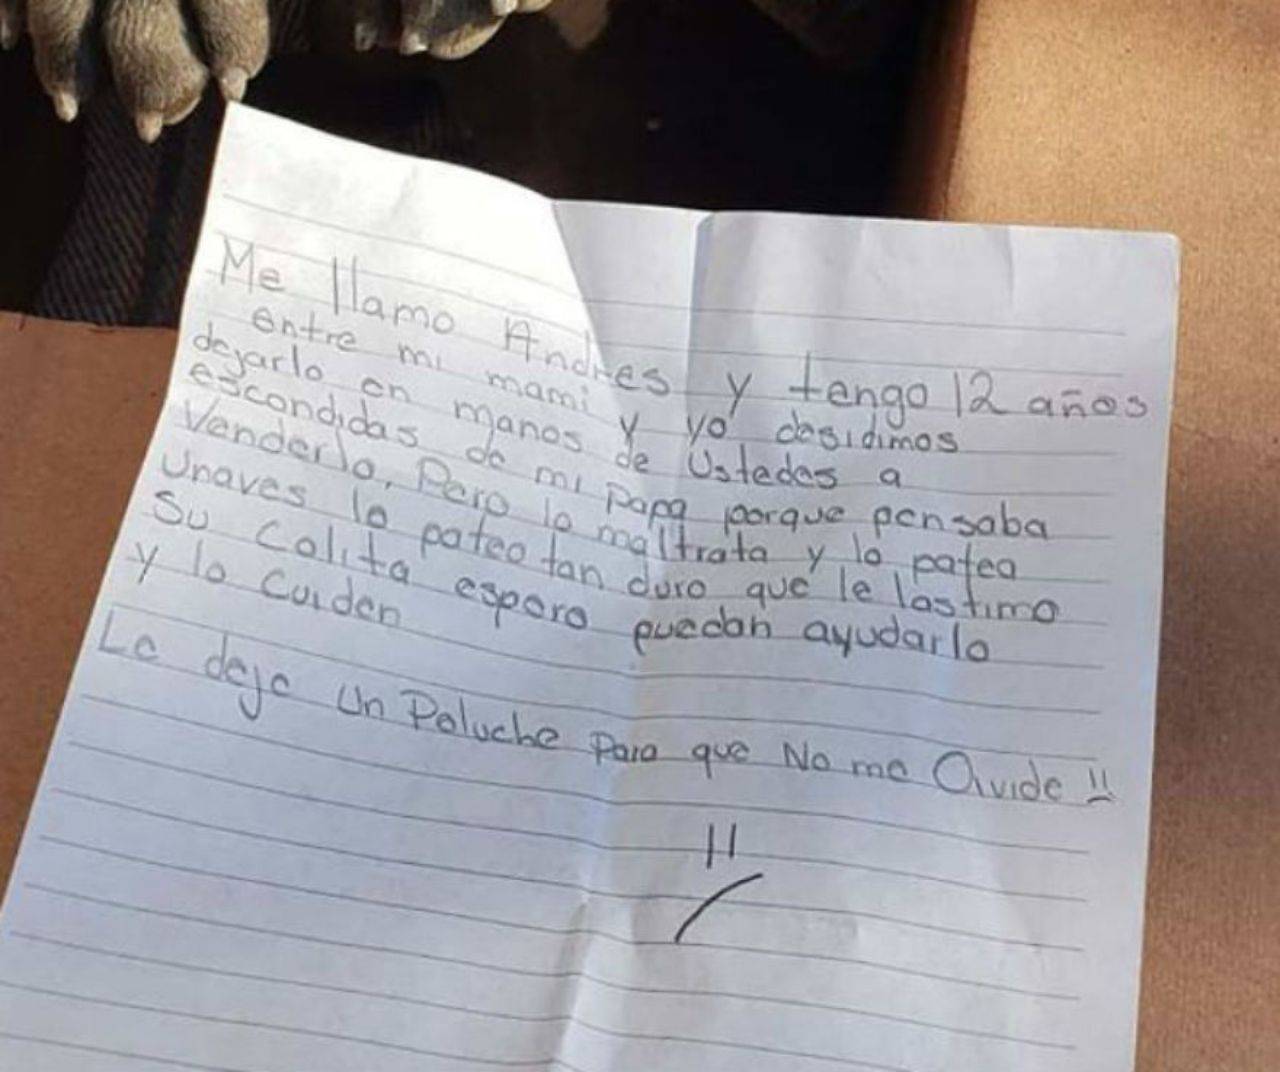 Me llamo Andres y tengo 12 años
entre mi mami y yo desidimos
dejarlo en manos de Ustedes a
escondidas de mi papa porque pensaba
Venderlo. Pero lo maltrata y lo patea
Unaves lo pateo tan duro que le lastimo
Su Colita espero puedan ayudarlo
y lo Cuiden
Le dejo Un Peluche Para que No me Olvide !!